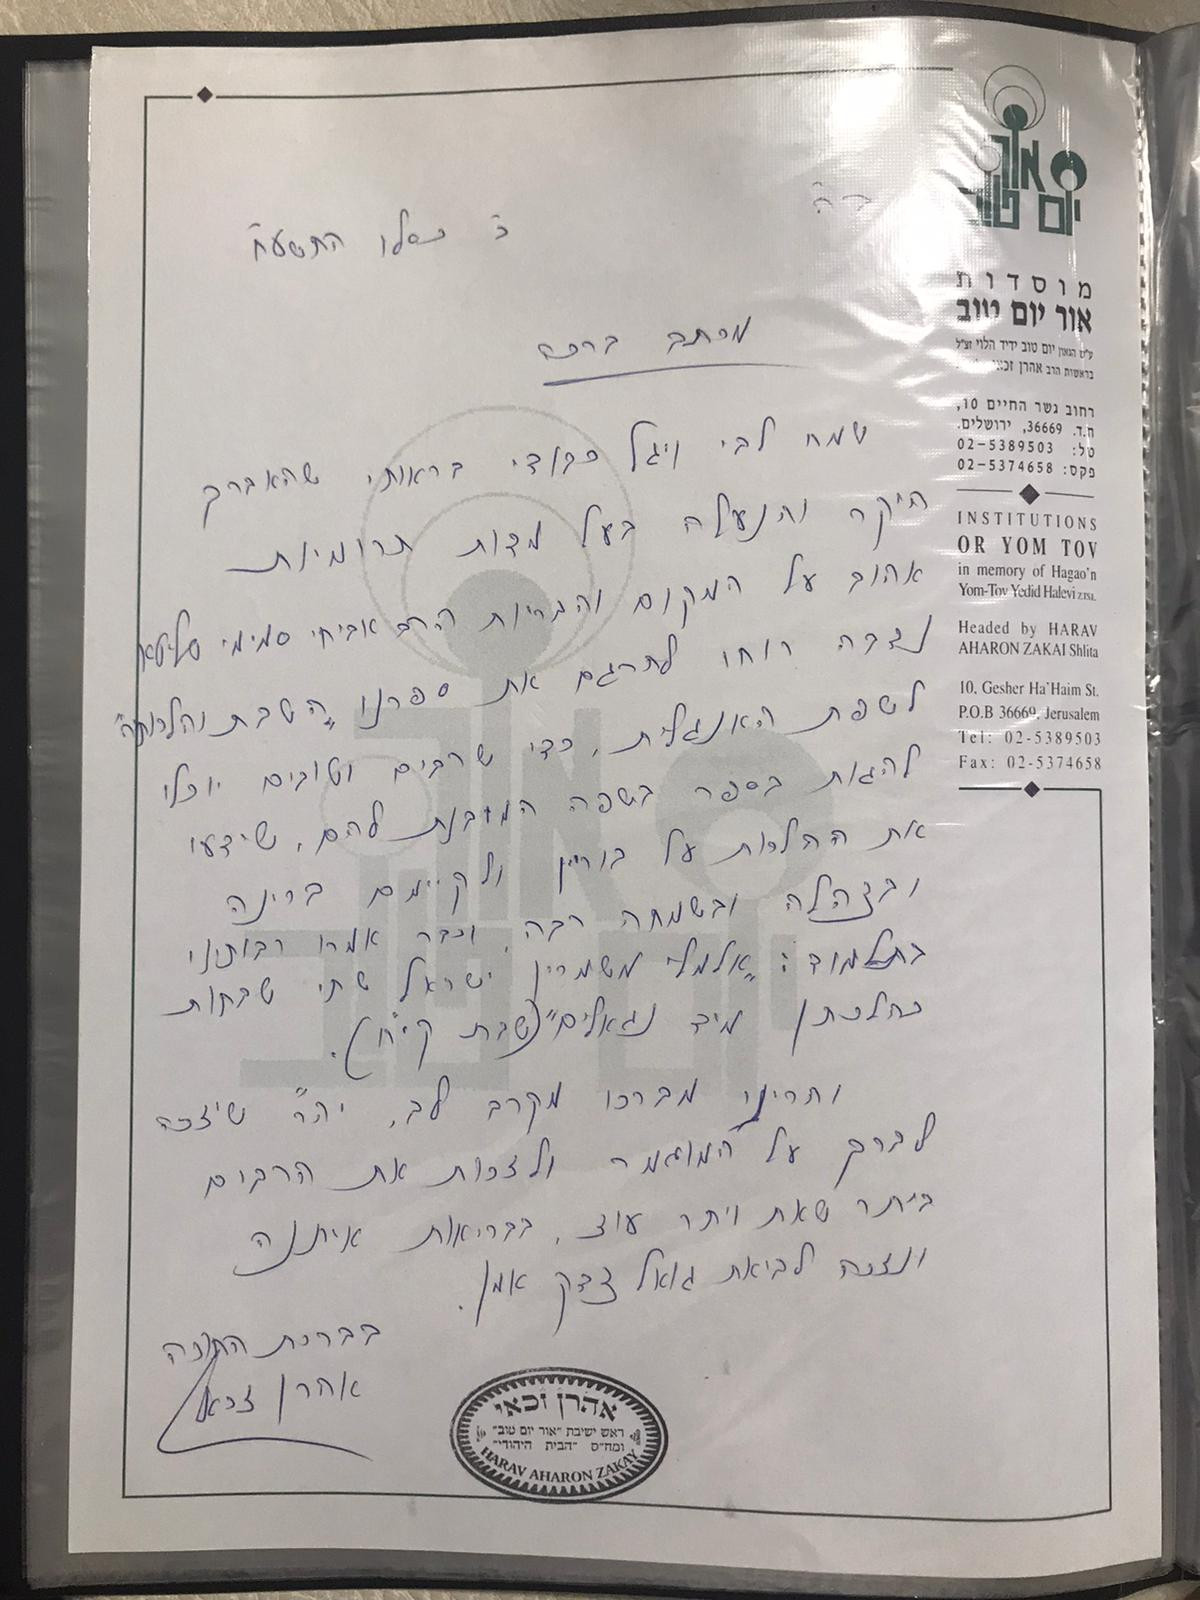 אור
יום טוב
מוסדות
אור יום טוב
ע"ש הגאון יום טוב ידיד הלוי זצ"ל
בראשות הרב אהרן זכאי
רחוב גשר החיים 10,
ת.ד. 36669, ירושלים.
טל: 02-5389503
פקס: 02-5374658
INSTITUTIONS
OR YOM TOV
in memory of Hagao'n
Yom-Tov Yedid Halevi ZTSL.
Headed by HARAV
AHARON ZAKAI Shlita
10, Gesher Ha'Haim St.
P.O.B 36669, Jerusalem
Tel: 02-5389503
Fax: 02-5374658
ב"ה
כ' כסלו התשע"ח
מכתב ברכה
שמח לבי ויגל כבודי בראותי שהאברך
היקר והנעלה בעל מדות תרומיות
אהוב על המקום והבריות הרב אביחי סמימי שליט"א
נדבה רוחו לתרגם את ספרנו "השבת והלכותיה"
לשפת האנגלית, כדי שרבים וטובים יוכלו
להגות בספר בשפה המובנת להם, שידעו
את ההלכות על בוריין ולקיימם ברינה
ובצהלה ובשמחה רבה, וכבר אמרו רבותינו
בתלמוד: "אלמלי משמרין ישראל שתי שבתות
כהלכתן מיד נגאלים" (שבת קי"ח).
והריני מברכו מקרב לב, יה"ר שיזכה
לברך על המוגמר ולזכות את הרבים
ביתר שאת ויתר עוצ, בבריאות איתנה
ונזכה לביאת גואל צדק אמן.
בברכת התורה
אהרן זכאי
אהרן זכאי
ראש ישיבת "אור יום טוב"
ומח"ס "הבית היהודי"
HARAV AHARON ZAKAY